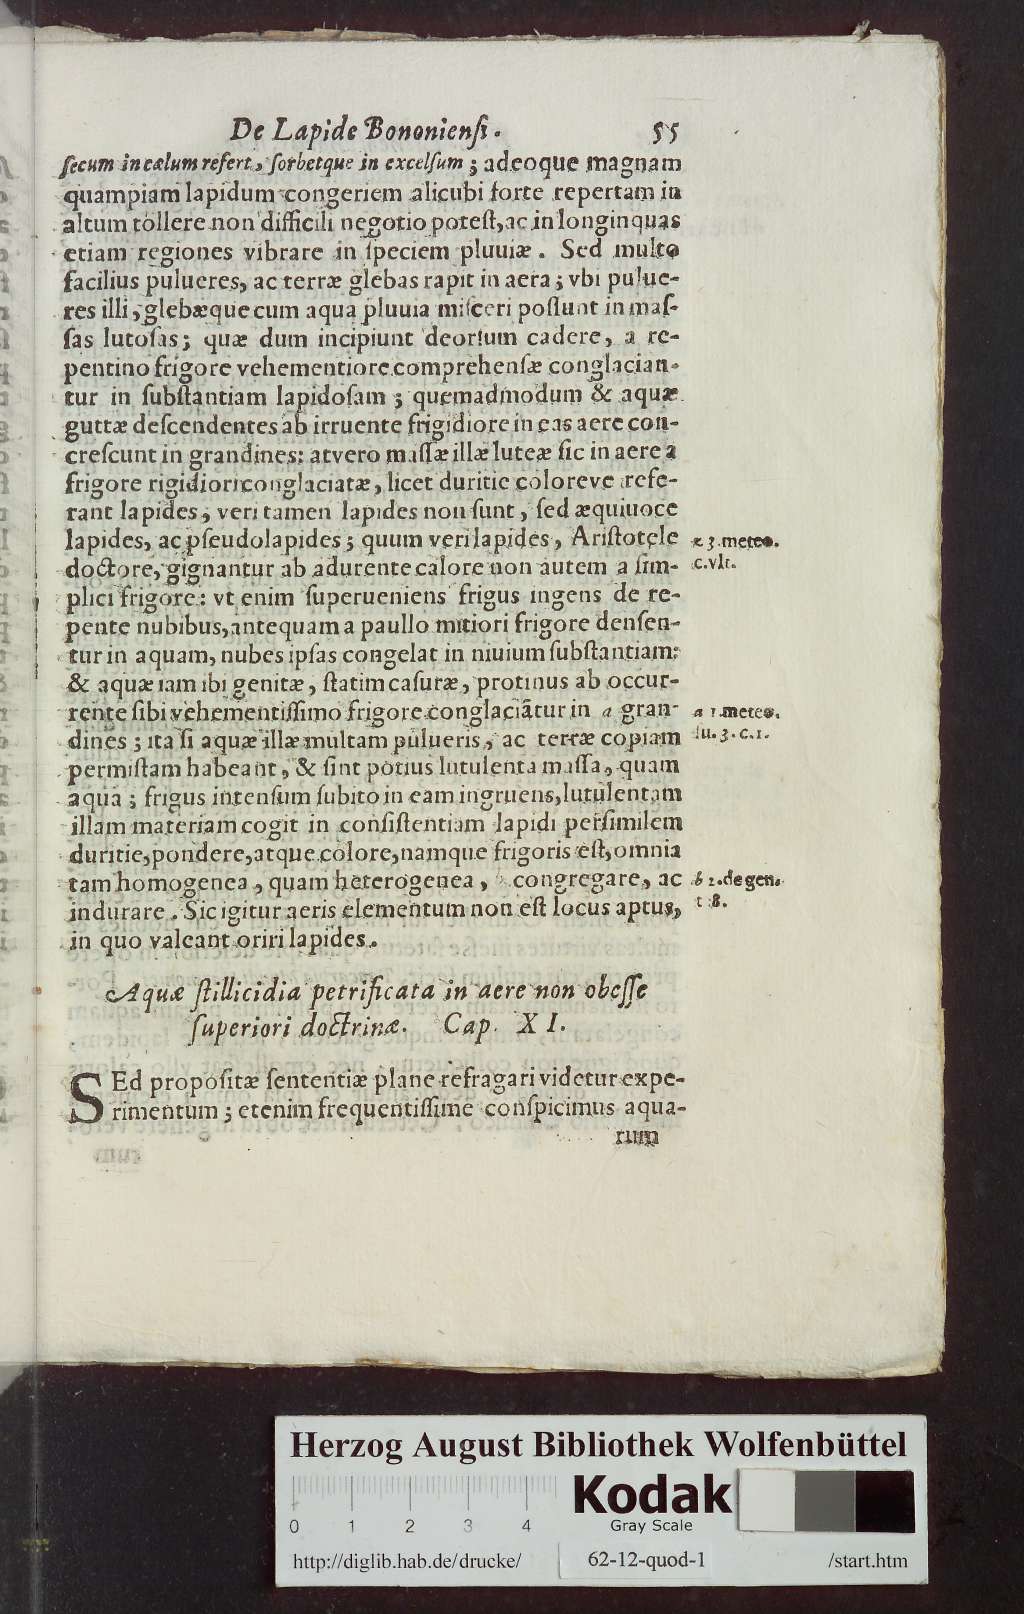 De Lapide Bononienſi. 55
ſecum in cælum refert, ſorbetque in excelſum; adeoque magnam
quampiam lapidum congeriem alicubi forte repertam in
altum tollere non difficili negotio poteſt, ac in longinquas
etiam regiones vibrare in ſpeciem pluuiæ. Sed multo
facilius pulueres, ac terræ glebas rapit in aera; vbi pulue-
res illi, glebæque cum aqua pluuia miſceri poſſunt in maſ-
ſas lutoſas; quæ dum incipiunt deorſum cadere, a re-
pentino frigore vehementiore comprehenſæ conglacian-
tur in ſubſtantiam lapidoſam; quemadmodum & aquæ
guttæ deſcendentes ab irruente frigidiore in eas aere con-
creſcunt in grandines: at vero maſſæ illæ luteæ ſic in aere a
frigore rigidiori conglaciatæ, licet duritie coloreve refe-
rant lapides, veri tamen lapides non ſunt, ſed æquiuoce
lapides, ac pſeudolapides; quum veri lapides, Ariſtotele
z 3. meteo.
doctore, gignantur ab adurente calore non autem a ſim-
c. vlt.
plici frigore: vt enim ſuperueniens frigus ingens de re-
pente nubibus, antequam a paullo mitiori frigore denſen-
tur in aquam, nubes ipſas congelat in niuium ſubſtantiam:
& aquæ iam ibi genitæ, ſtatim caſuræ, protinus ab occur-
rente ſibi vehementiſſimo frigore conglaciãtur in a gran-
a 1. meteo.
dines; ita ſi aquæ illæ multam pulueris, ac terræ copiam
ſu. 3. c. 1.
permiſtam habeant, & ſint potius lutulenta maſſa, quam
aqua; frigus intenſum ſubito in eam ingruens, lutulentam
illam materiam cogit in conſiſtentiam lapidi perſimilem
duritie, pondere, atque colore, namque frigoris eſt, omnia
tam homogenea, quam heterogenea, b congregare, ac
b 2. de gen.
indurare. Sic igitur aeris elementum non eſt locus aptus,
t 8.
in quo valeant oriri lapides.
Aquæ ſtillicidia petrificata in aere non obeſſe
ſuperiori doctrinæ. Cap. XI.
SEd propoſitæ ſententiæ plane refragari videtur expe-
rimentum; etenim frequentiſſime conſpicimus aqua-
rum
Herzog August Bibliothek Wolfenbüttel
Kodak
Gray Scale
0 1 2 3 4
http://diglib.hab.de/drucke/ 62-12-quod-1 /start.htm